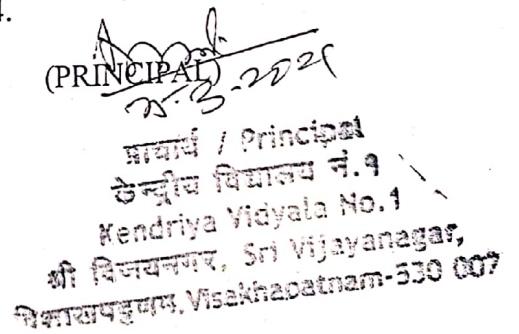 (PRINCIPAL)
प्राचार्य / Principal
केन्द्रीय विद्यालय नं.१
Kendriya Vidyala No.1
श्री विजयनगर, Sri Vijayanagar,
विशाखपट्टणम, Visakhapatnam-530 007